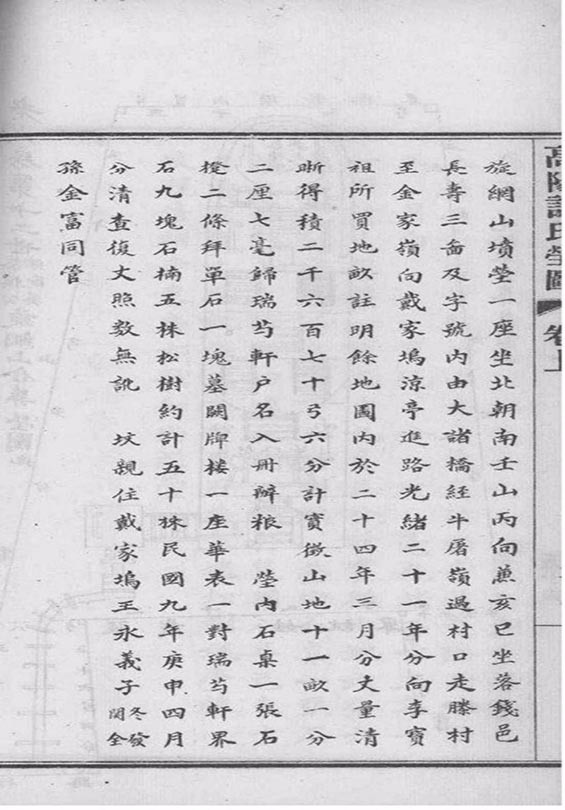 高陽許氏塋圖 卷上
旋網山墳塋一座坐北朝南壬山丙向兼亥巳坐落錢邑
長壽三啚及字號內由大諸橋經牛屠嶺過村口走滕村
至金家嶺向戴家塢涼亭進路光緒二十一年分向李寶
祖所買地畝註明餘地圖內於二十四年三月分丈量清
晰得積二千六百七十弓六分計實徵山地十一畝一分
二厘七毫歸瑞芍軒戶名入冊辦粮 塋內石桌一張石
櫈二條拜單石一塊墓闕牌樓一座華表一對瑞芍軒界
石九塊石楠五株松樹約計五十株民國九年庚申四月
分清查復丈照數無訛 坟親住戴家塢王永義子冬發開全
孫金富同管